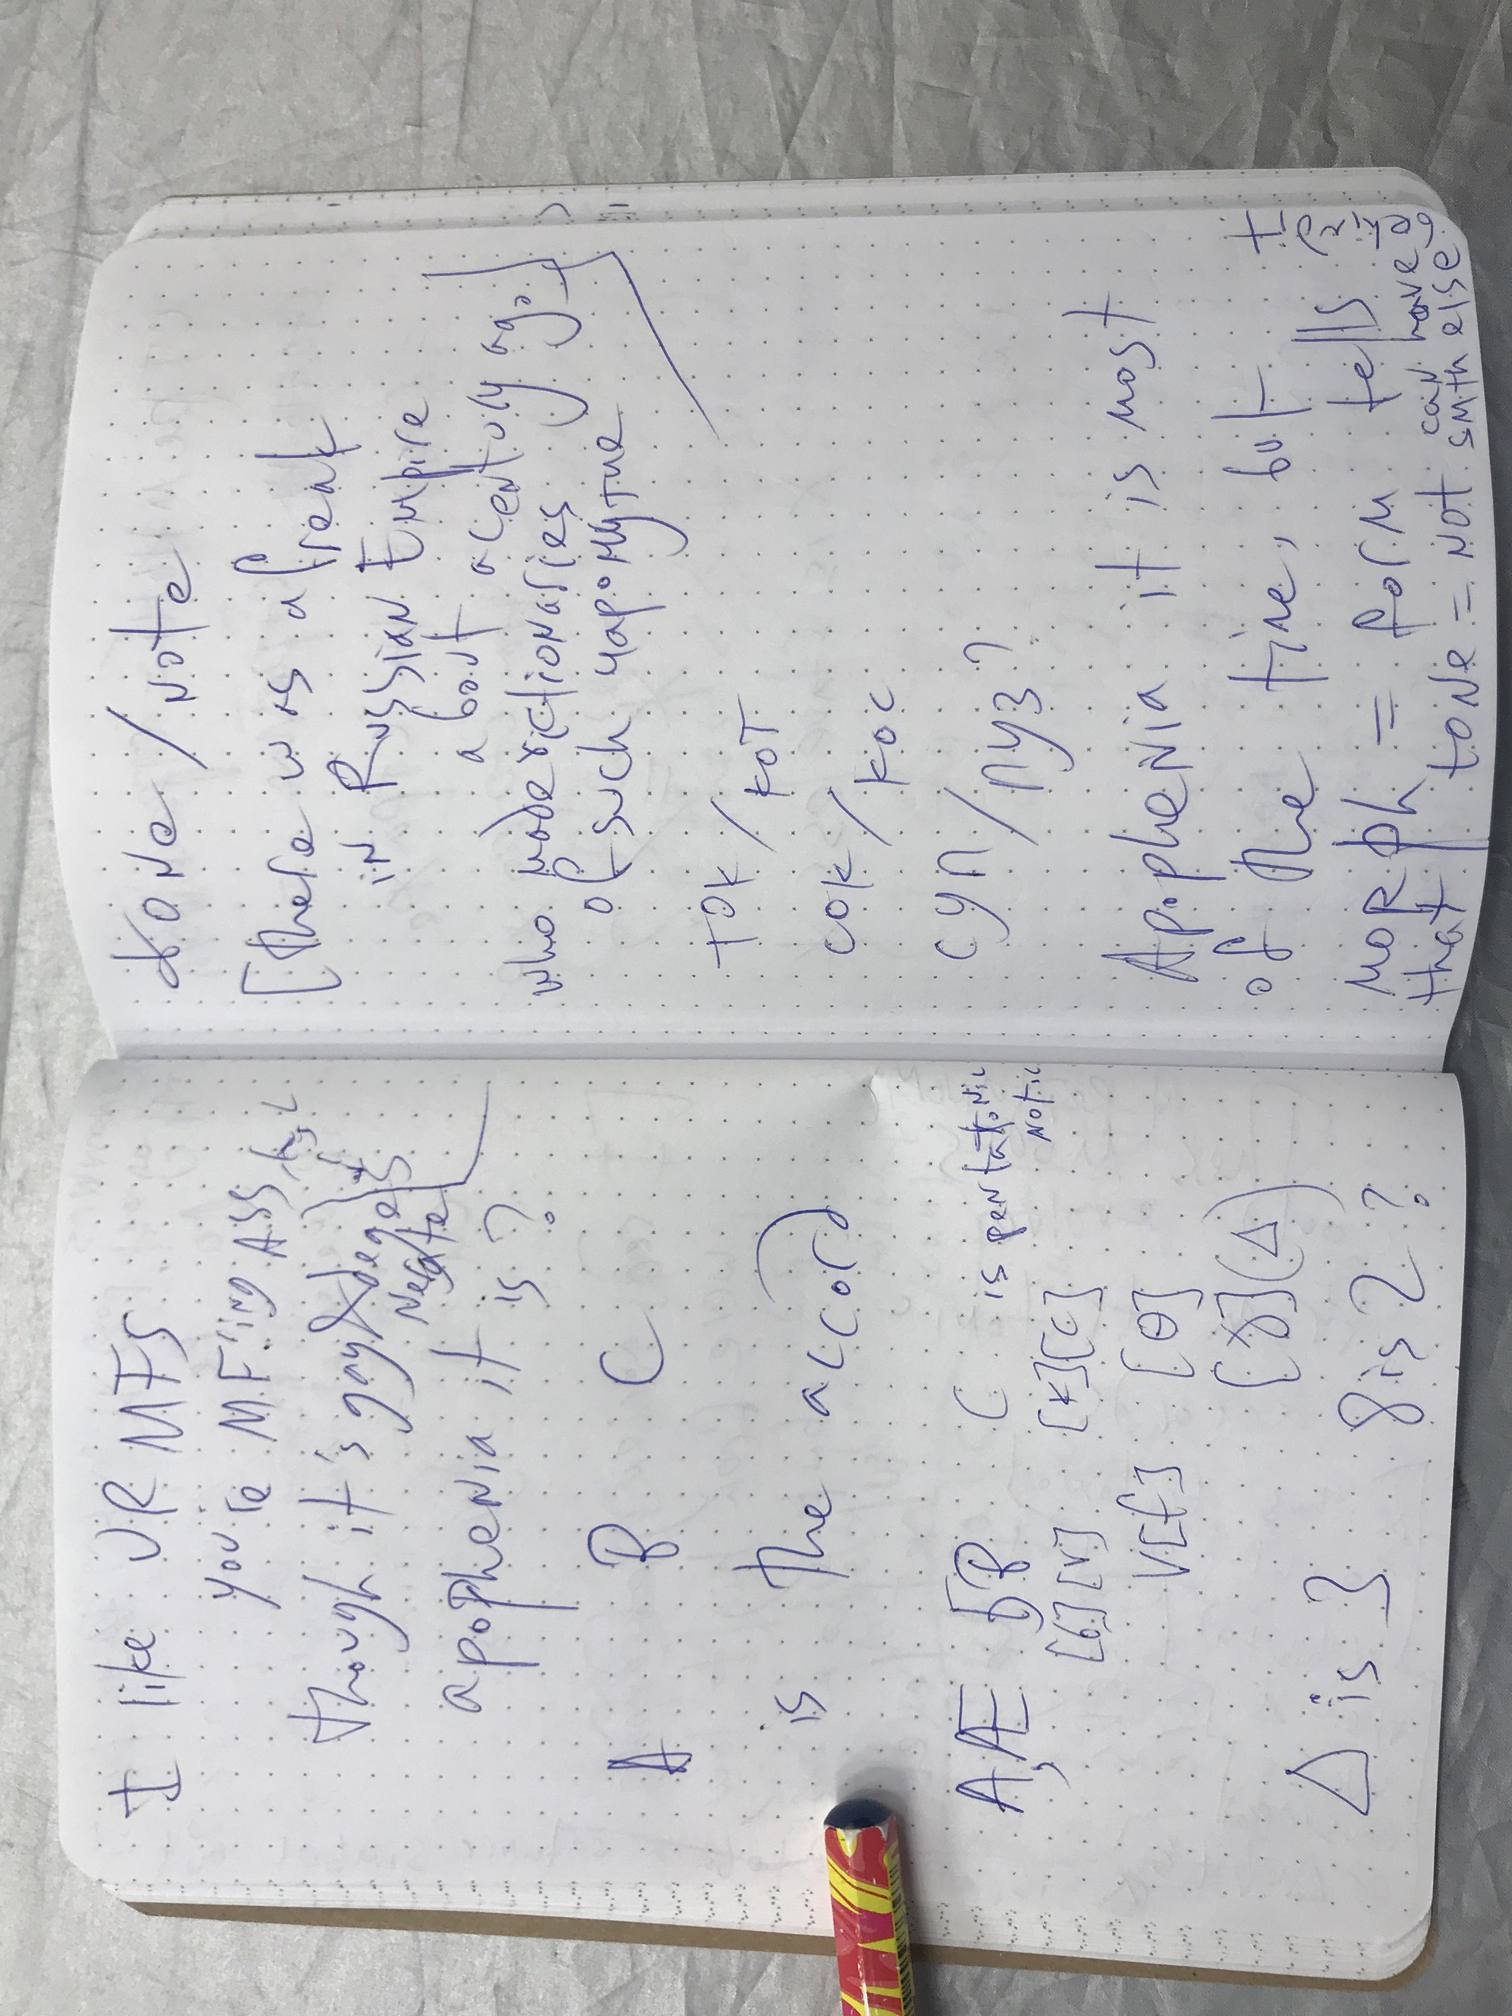 I like UR MFS
you're MF'ing ASS
though it's gay
apophenia it is?
A B C
is the accord
A, Æ БB C is pentatonic
[б][v] [k][c] Notic
V[f] [θ]
[ğ](Δ)
Δ is 3 8 is 2?
done / Note
[there was a freak
in Russian Empire
about a century ago]
who made dictionaries
of such
ток / кот
сок / кос
суп / пуз?
Apophenia it is most
of the time, but I
MORPH = form tells
that tone = Not can have
smth else